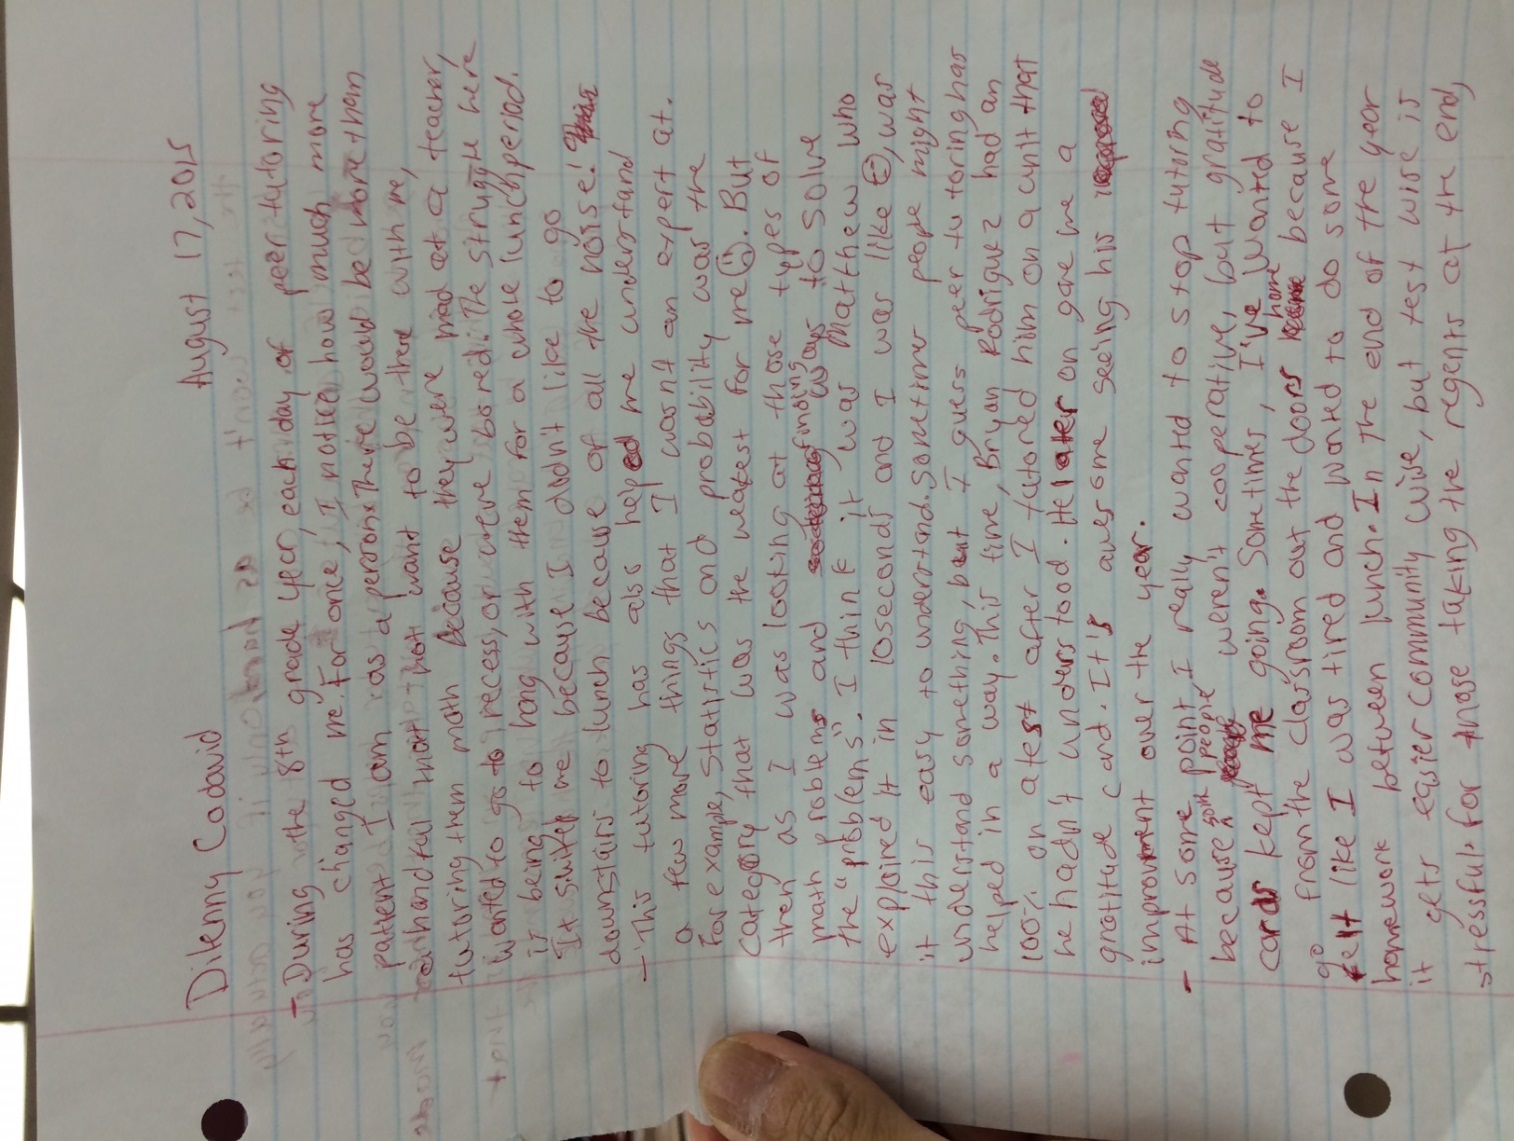 Dilenny Codaid August 17, 2015
- During the 8th grade year, each day of peer tutoring
has changed me. For once, I notice how much more
patient I am as a person. There would be more than
a handful that not want to be there with me,
tutoring them math because they were mad at a teacher,
wanted to go to recess, or were bored. The struggle here
is being to hang with them for a whole lunch period.
It suited me because I didn't like to go
downstairs to lunch because of all the noise!
- This tutoring has also helped me understand
a few more things that I wasn't an expert at.
For example, Statistics and probability was the
category that was the weakest for me. But
then as I was looking at those types of
math problems and finding ways to solve
the "problems". I think it was Matthew who
explained it in 10 seconds and I was like , was
it this easy to understand. Sometimes people might
understand something, but I guess peer tutoring has
helped in a way. This time, Bryan Rodriguez had an
100% on a test after I tutored him on a unit that
he hadn't understood. He later on gave me a
gratitude card. It's awesome seeing his
improvement over the year.
- At some point I really wanted to stop tutoring
because some people weren't cooperative, but gratitude
cards kept me going. Sometimes, I've wanted to
go from the classroom out the doors home because I
felt like I was tired and wanted to do some
homework between lunch. In the end of the year
it gets easier community wise, but test wise is
stressful for those taking the regents at the end,